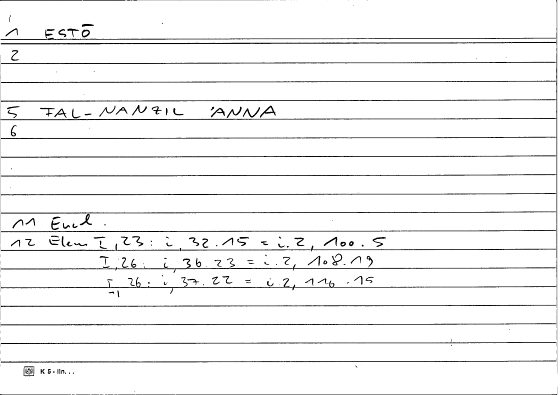 1 ESTŌ
2
5 FAL-NANZIL ʾANNA
6
11 Eucl.
12 Elem I, 23: i, 32.15 = i.2, 100.5
I, 26: i, 36.23 = i.2, 108.19
I, 26: i, 37.22 = i.2, 110.15
K 5 - lin...